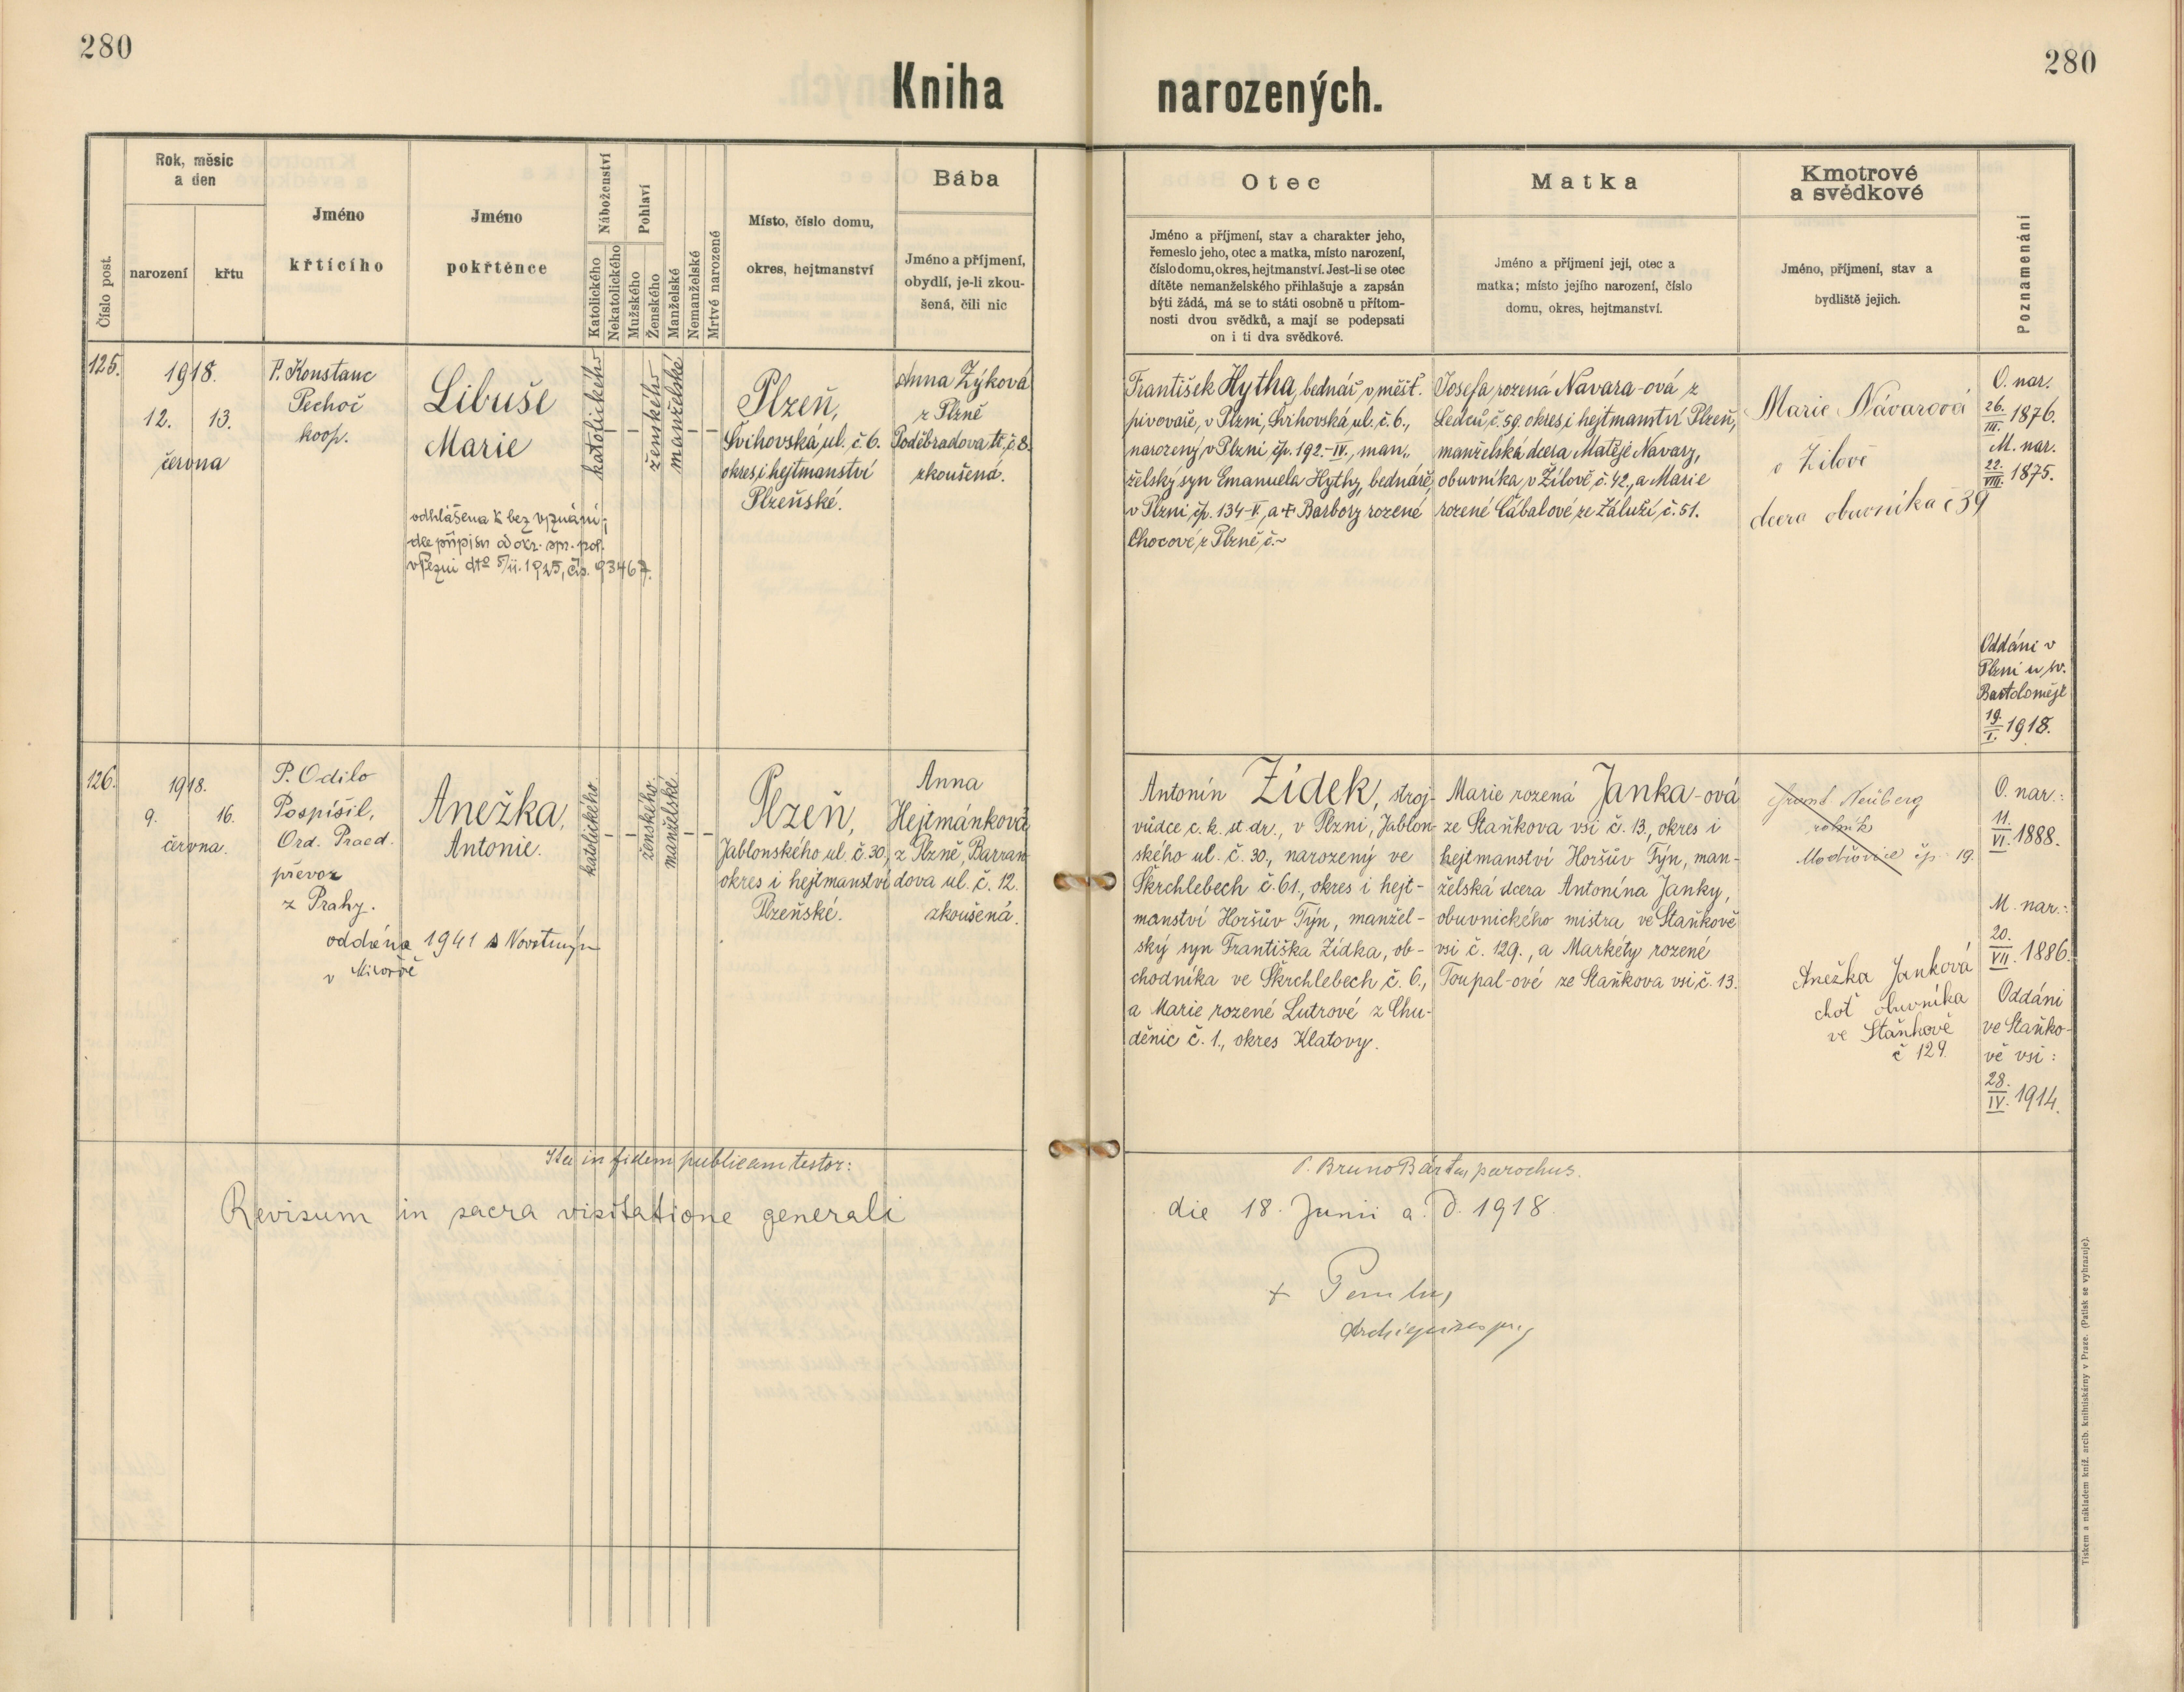 280
280
Kniha narozených.
Číslo post.
Rok, měsíc
a den
narození
křtu
Jméno
křtícího
Jméno
pokřtěnce
Náboženství
Katolického
Nekatolického
Pohlaví
Mužského
Ženského
Manželské
Nemanželské
Mrtvé narozené
Místo, číslo domu,
okres, hejtmanství
Bába
Jméno a příjmení,
obydlí, je-li zkou-
šená, čili nic
Otec
Jméno a příjmení, stav a charakter jeho,
řemeslo jeho, otec a matka, místo narození,
číslo domu, okres, hejtmanství. Jest-li se otec
dítěte nemanželského přihlašuje a zapsán
býti žádá, má se to státi osobně u přítom-
nosti dvou svědků, a mají se podepsati
on i ti dva svědkové.
Matka
Jméno a příjmení její, otec a
matka; místo jejího narození, číslo
domu, okres, hejtmanství.
Kmotrové
a svědkové
Jméno, příjmení, stav a
bydliště jejich.
Poznamenání
125.
1918.
12. 13.
června
P. Konstanc
Pechoč
koop.
Libuše
Marie
odhlášena k bez vyznání;
dle přípisu od okr. sp. pol.
v Plzni dto 5/11. 1925, čís. 93467.
katolického
-
-
ženského
manželské
-
-
Plzeň,
Švihovská ul. č. 6.
okres i hejtmanství
Plzeňské.
Anna Zýková
z Plzně
Poděbradova tř. č. 8.
zkoušená.
František Hytha, bednář v měšť.
pivovaře, v Plzni, Švihovská ul. č. 6.,
narozený v Plzni čp. 192-IV., man-
želský syn Emanuela Hythy, bednáře,
v Plzni, čp. 134-V, a + Barbory rozené
Chocové z Plzně č. -
Josefa rozená Navara-ová z
Ledců, č. 59. okres i hejtmanství Plzeň,
manželská dcera Matěje Navary,
obuvníka, v Žilově, č. 42., a Marie
rozené Cábalové ze Záluží, č. 51.
Marie Návarová
v Žilově
dcera obuvníka č 39
O. nar.
26./III. 1876.
M. nar.
22./VIII. 1875.
Oddáni v
Plzni u sv.
Bartoloměje
19./I. 1918.
126.
1918.
9. 16.
června.
P. Odilo
Pospíšil,
Ord. Praed.
převoz
z Prahy.
Anežka,
Antonie.
oddána 1941 s Novotným
v
katolického
-
-
ženského
manželské
-
-
Plzeň,
Jablonského ul. č. 30.,
okres i hejtmanství
Plzeňské.
Anna
Hejtmánková
z Plzně, Barran-
dova ul. č. 12.
zkoušená.
Antonín Žídek, stroj-
vůdce c. k. st dr., v Plzni, Jablon-
ského ul. č. 30., narozený ve
Škrchlebech č. 61., okres i hejt-
manství Horšův Týn, manžel-
ský syn Františka Žídka, ob-
chodníka ve Škrchlebech č. 6.,
a Marie rozené Lutrové z Chu-
děnic č. 1., okres Klatovy.
Marie rozená Janka-ová
ze Staňkova vsi č. 13., okres i
hejtmanství Horšův Týn, man-
želská dcera Antonína Janky,
obuvnického mistra ve Staňkově
vsi č. 129., a Markéty rozené
Toupal-ové ze Staňkova vsi č. 13.
Neüberg
rolník
čp. 19.
Anežka Janková
choť obuvníka
ve Staňkově
č 129.
O. nar.:
11./VI. 1888.
M. nar.:
20./VII. 1886.
Oddáni
ve Staňko-
vě vsi:
28./IV. 1914.
Ita in fidem publicam testor:
P. Bruno Bárta, parochus.
Revisum in sacra visitatione generali
die 18. Junii a. D. 1918.
Tiskem a nákladem kníž. arcib. knihtiskárny v Praze. (Patisk se vyhrazuje).